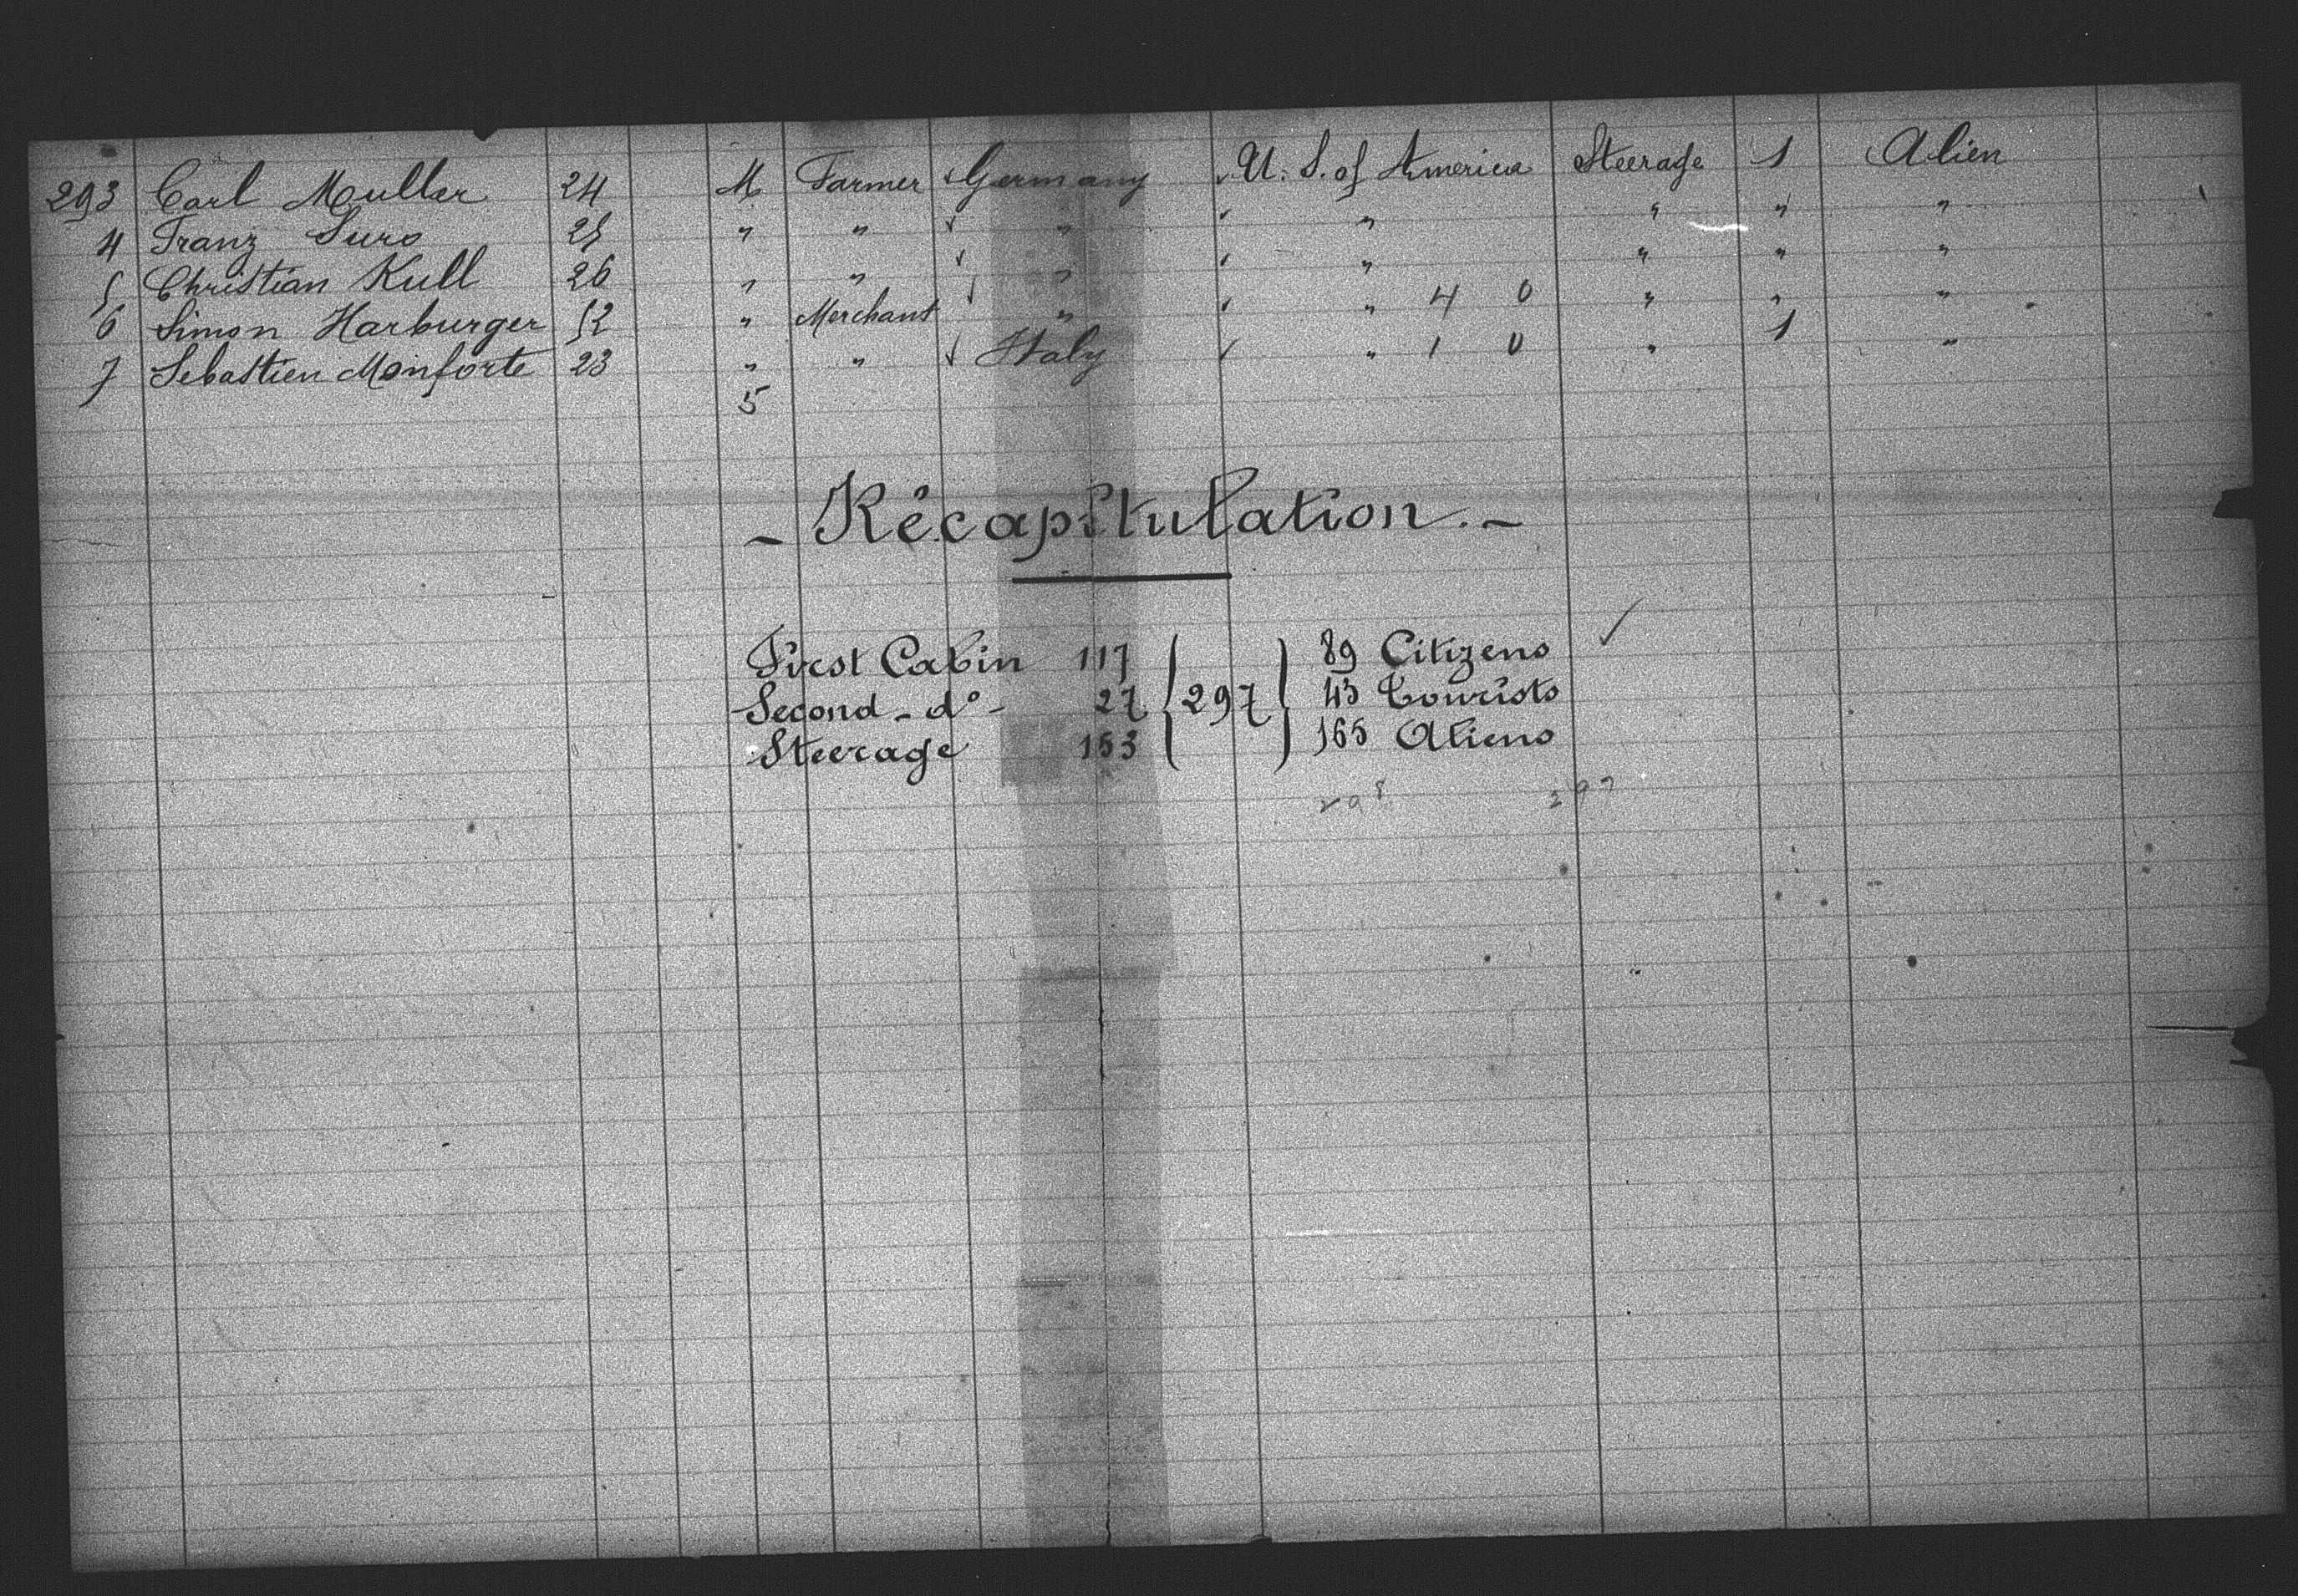 293 Carl Muller 24 M Farmer Germany U. S. of America Steerage 1 Alien
4 Franz Suro 25 " " " " " " "
5 Christian Kull 26 " " " " " " "
6 Simon Harburger 52 " Merchant " " 4 0 " " "
7 Sebastien Monforte 23 " " Italy " 1 0 " 1 "
5
- Récapitulation. -
First Cabin 117 89 Citizens
Second - do - 27 297 43 Tourists
Steerage 153 165 Aliens
298 297